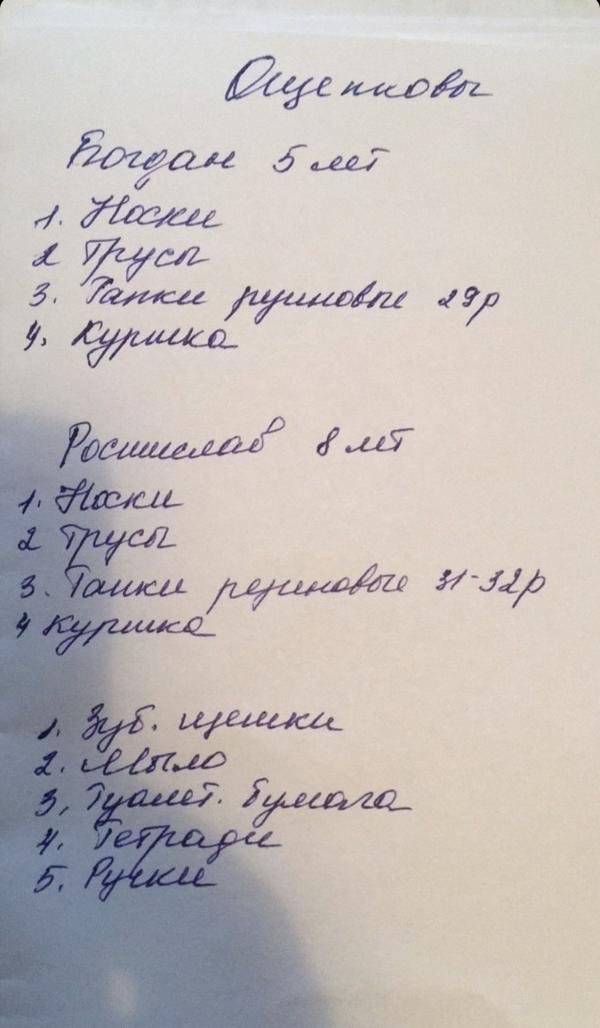 Ощепковы
Богдан 5 лет
1. Носки
2 Трусы
3. Тапки руиновые 29р
4. Куришка
Ростислав 8 лет
1. Носки
2 Трусы
3. Тапки резиновые 31-32р
4 Куришка
1. Зуб. щетки
2. Мыло
3, Туалет. бумага
4. Тетради
5. Ручки